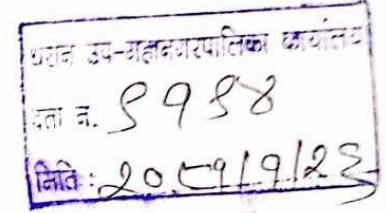 धरान उप-महानगरपालिका कार्यालय
दर्ता न. ९१९४
मिति : २०८१/१/२६